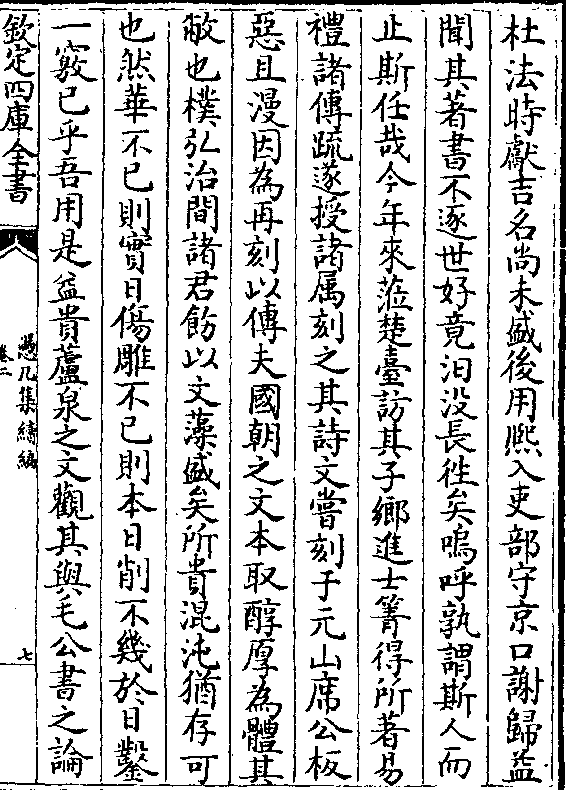 杜法時獻吉名尚未盛後用熈入吏部守京口謝歸益
聞其著書不逐世好竟汩没長徃矣嗚呼孰謂斯人而
止斯任哉今年來蒞楚臺訪其子鄉進士箐得所著易
禮諸傳䟽遂授諸属刻之其詩文嘗刻于元山席公板
惡且漫因為再刻以傳夫國朝之文本取醇厚為體其
敝也樸弘治間諸君飭以文藻盛矣所貴混沌猶存可
也然華不已則實日傷雕不已則本日削不幾於日鑿
一竅已乎吾用是益貴蘆泉之文觀其與毛公書之論
欽定四庫全書
憑几集續編
卷二
七